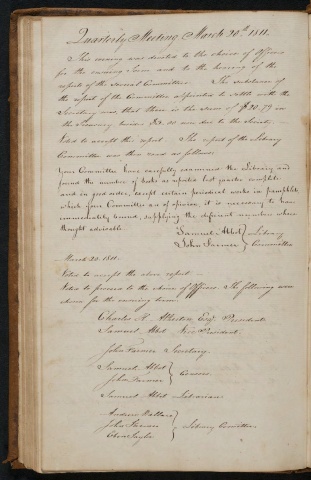 Quarterly Meeting, March 20th 1811.
This evening was devoted to the choice of Officers
for the ensuing Term and to the hearing of the
report of the several Committees. The substance of
the report of the Committee appointed to settle with the
Secretary was, that there is the sum of $20.77 in
the Treasury
Voted to accept this report. The report of the Library
Committee was then read as follows
Your Committee have carefully examined the Library and
found the number of books as reported last quarter complete
and in good order, except certain periodical works in pamphlets
which your Committee are of opinion, it is necessary to have
immediately bound, supplying the different numbers where
thought adviseable.
Samuel Abbot } Library
John Farmer } Committee
March 20. 1811.
Voted to accept the above report
Voted to proceed to the choice of Officers. The following were
chosen for the ensuing term.
Charles H. Atherton Esq. President
Samuel Abbot Vice President.
John Farmer Secretary.
Samuel Abbot }
John Farmer } Censors
Samuel Abbot Librarian
Andrew Wallace }
John Farmer } Library Committee.